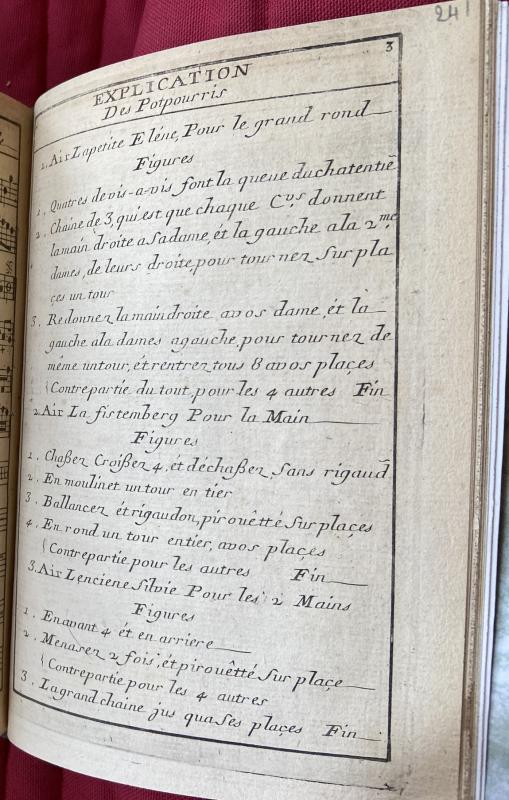 241
3
EXPLICATION
Des Potpourris
1. Air La petite Eléne, Pour le grand rond
Figures
1. Quatres de vis-a-vis font la queue du chat entiē
2. Chaine de 3, qui est que chaque C.vs donnent
la main droite a sa dame, ét la gauche a la 2.me
dames, de leurs droite, pour tour nez Sur pla
çes un tour
3. Redonnez la main droite a vos dame, ét la
gauche a la dames a gauche, pour tournez de
même un tour, ét rentrez tous 8 a vos plaçes
{Contrepartie du tout, pour les 4 autres Fin
2. Air La fistemberg Pour la Main
Figures
1. Chaßez Croißez 4, ét déchaßez, Sans rigaud̄
2. En moulinet un tour en tier
3. Ballancez ét rigaudon, pirouêtté Sur plaçes
4. En rond un tour entier, a vos plaçes
{Contrepartie pour les autres Fin
3. Air Lenciene Silvie Pour les 2 Mains
Figures
1. En avant 4 ét en arriere
2. Menasez 2 fois, ét pirouêtté Sur plaçe
{Contrepartie pour les 4 autres
3. La grand chaine jus qua Ses plaçes Fin